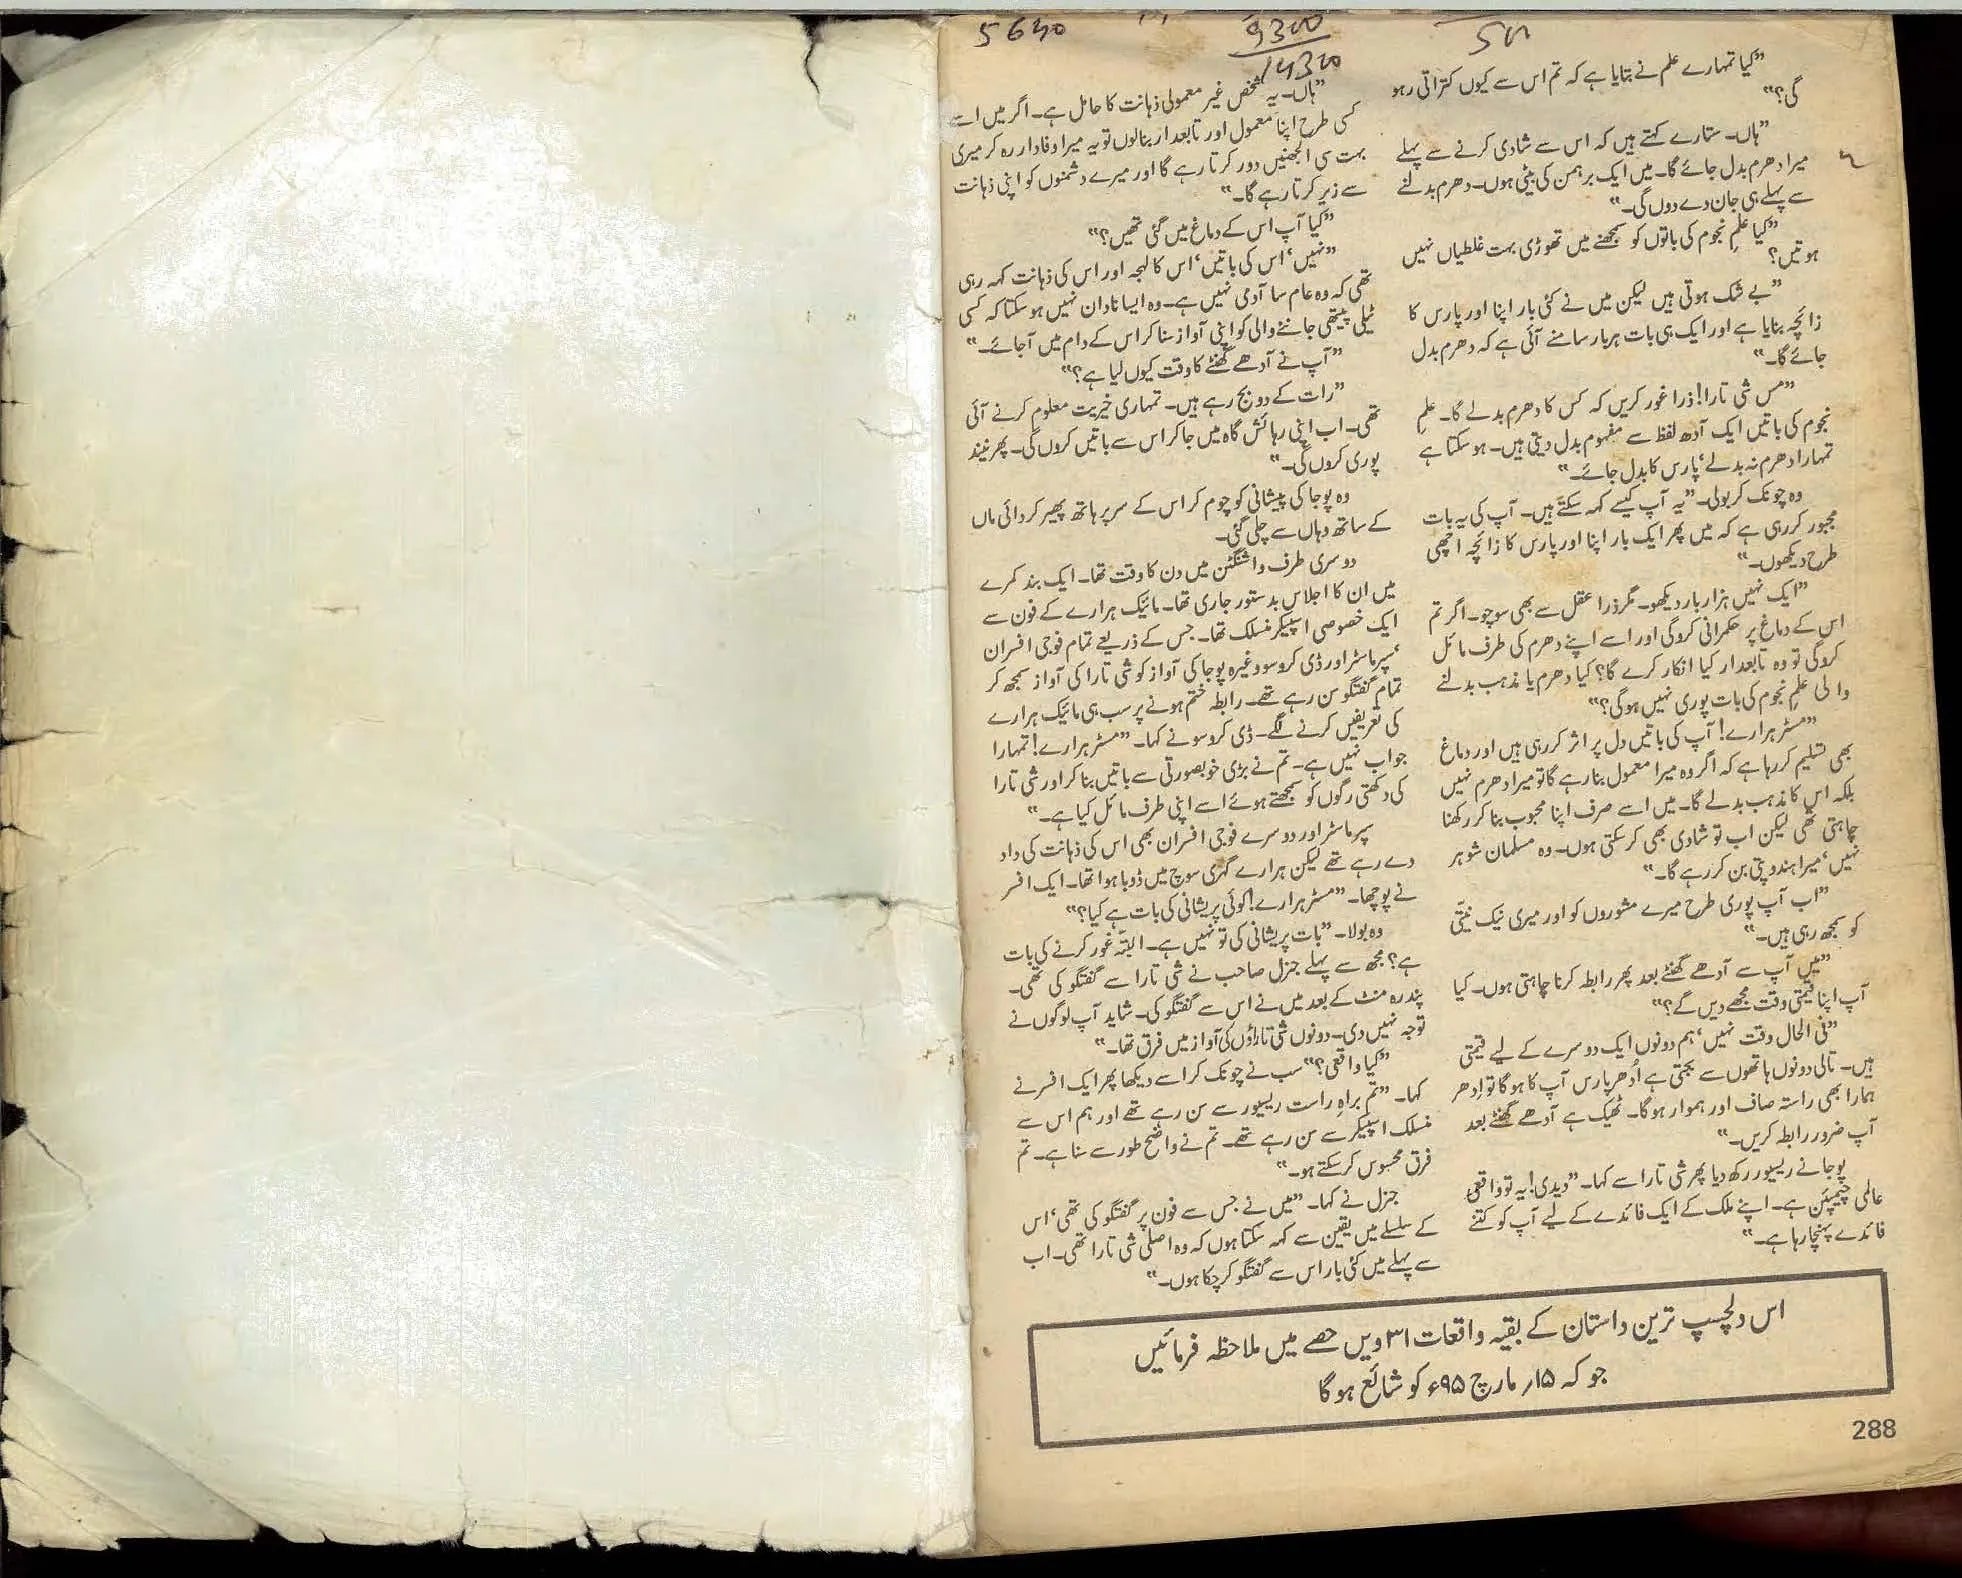 5640
9300
14320
50
”کیا تمہارے علم نے بتایا ہے کہ تم اس سے کیوں کتراتی رہو
گی؟“
”ہاں۔ ستارے کہتے ہیں کہ اس سے شادی کرنے سے پہلے
میرا دھرم بدل جائے گا۔ میں ایک برہمن کی بیٹی ہوں۔ دھرم بدلنے
سے پہلے ہی جان دے دوں گی۔“
”کیا علم نجوم کی باتوں کو سمجھنے میں تھوڑی بہت غلطیاں نہیں
ہوتیں؟
”بے شک ہوتی ہیں لیکن میں نے کئی بار اپنا اور پارس کا
زائچہ بنایا ہے اور ایک ہی بات ہر بار سامنے آئی ہے کہ دھرم بدل
جائے گا۔“
”مس شی تارا! ذرا غور کریں کہ کس کا دھرم بدلے گا۔ علمِ
نجوم کی باتیں ایک آدھ لفظ سے مفہوم بدل دیتی ہیں۔ ہو سکتا ہے
تمہارا دھرم نہ بدلے‘ پارس کا بدل جائے۔“
وہ چونک کر بولی۔ ”یہ آپ کیسے کہہ سکتے ہیں۔ آپ کی یہ بات
مجبور کر رہی ہے کہ میں پھر ایک بار اپنا اور پارس کا زائچہ اچھی
طرح دیکھوں۔“
”ایک نہیں ہزار بار دیکھو۔ مگر ذرا عقل سے بھی سوچو۔ اگر تم
اس کے دماغ پر حکمرانی کرو گی اور اسے اپنے دھرم کی طرف مائل
کرو گی تو وہ تابعدار کیا انکار کرے گا؟ کیا دھرم یا مذہب بدلنے
والی علمِ نجوم کی بات پوری نہیں ہوگی؟“
”مسٹر ہرارے! آپ کی باتیں دل پر اثر کر رہی ہیں اور دماغ
بھی تسلیم کر رہا ہے کہ اگر وہ میرا معمول بنا رہے گا تو میرا دھرم نہیں
بلکہ اس کا مذہب بدلے گا۔ میں اسے صرف اپنا محبوب بنا کر رکھنا
چاہتی تھی لیکن اب تو شادی بھی کر سکتی ہوں۔ وہ مسلمان شوہر
نہیں‘ میرا ہندو پتی بن کر رہے گا۔“
”اب آپ پوری طرح میرے مشوروں کو اور میری نیک نیتی
کو سمجھ رہی ہیں۔“
”میں آپ سے آدھے گھنٹے بعد پھر رابطہ کرنا چاہتی ہوں۔ کیا
آپ اپنا قیمتی وقت مجھے دیں گے؟“
”فی الحال وقت نہیں‘ ہم دونوں ایک دوسرے کے لیے قیمتی
ہیں۔ تالی دونوں ہاتھوں سے بجتی ہے اُدھر پارس آپ کا ہوگا تو اِدھر
ہمارا بھی راستہ صاف اور ہموار ہوگا۔ ٹھیک ہے آدھے گھنٹے بعد
آپ ضرور رابطہ کریں۔“
پوجا نے ریسیور رکھ دیا پھر شی تارا سے کہا۔ ”دیدی! یہ تو واقعی
عالمی چیمپئن ہے۔ اپنے ملک کے ایک فائدے کے لیے آپ کو کتنے
فائدے پہنچا رہا ہے۔“
”ہاں۔ یہ شخص غیر معمولی ذہانت کا حامل ہے۔ اگر میں اسے
کسی طرح اپنا معمول اور تابعدار بنا لوں تو یہ میرا وفادار رہ کر میری
بہت سی الجھنیں دور کرتا رہے گا اور میرے دشمنوں کو اپنی ذہانت
سے زیر کرتا رہے گا۔“
”کیا آپ اس کے دماغ میں گئی تھیں؟“
”نہیں‘ اس کی باتیں‘ اس کا لہجہ اور اس کی ذہانت کہہ رہی
تھی کہ وہ عام سا آدمی نہیں ہے۔ وہ ایسا نادان نہیں ہو سکتا کہ کسی
ٹیلی پیتھی جاننے والی کو اپنی آواز سنا کر اس کے دام میں آ جائے۔“
”آپ نے آدھے گھنٹے کا وقت کیوں لیا ہے؟“
”رات کے دو بج رہے ہیں۔ تمہاری خیریت معلوم کرنے آئی
تھی۔ اب اپنی رہائش گاہ میں جا کر اس سے باتیں کروں گی۔ پھر نیند
پوری کروں گی۔“
وہ پوجا کی پیشانی کو چوم کر اس کے سر پر ہاتھ پھیر کر دائی ماں
کے ساتھ وہاں سے چلی گئی۔
دوسری طرف واشنگٹن میں دن کا وقت تھا۔ ایک بند کمرے
میں ان کا اجلاس بدستور جاری تھا۔ مائیک ہرارے کے فون سے
ایک خصوصی اسپیکر منسلک تھا۔ جس کے ذریعے تمام فوجی افسران
‘سپر ماسٹر اور ڈی کروسو وغیرہ پوجا کی آواز کو شی تارا کی آواز سمجھ کر
تمام گفتگو سن رہے تھے۔ رابطہ ختم ہونے پر سب ہی مائیک ہرارے
کی تعریفیں کرنے لگے۔ ڈی کروسو نے کہا۔ ”مسٹر ہرارے! تمہارا
جواب نہیں ہے۔ تم نے بڑی خوبصورتی سے باتیں بنا کر اور شی تارا
کی دکھتی رگوں کو سمجھتے ہوئے اسے اپنی طرف مائل کیا ہے۔“
سپر ماسٹر اور دوسرے فوجی افسران بھی اس کی ذہانت کی داد
دے رہے تھے لیکن ہرارے گہری سوچ میں ڈوبا ہوا تھا۔ ایک افسر
نے پوچھا۔ ”مسٹر ہرارے! کوئی پریشانی کی بات ہے کیا؟“
وہ بولا۔ ”بات پریشانی کی تو نہیں ہے۔ البتہ غور کرنے کی بات
ہے؟ مجھ سے پہلے جنرل صاحب نے شی تارا سے گفتگو کی تھی۔
پندرہ منٹ کے بعد میں نے اس سے گفتگو کی۔ شاید آپ لوگوں نے
توجہ نہیں دی۔ دونوں شی تاراؤں کی آواز میں فرق تھا۔“
”کیا واقعی؟“ سب نے چونک کر اسے دیکھا پھر ایک افسر نے
کہا۔ ”تم براہِ راست ریسیور سے سن رہے تھے اور ہم اس سے
منسلک اسپیکر سے سن رہے تھے۔ تم نے واضح طور سے سنا ہے۔ تم
فرق محسوس کر سکتے ہو۔“
جنرل نے کہا۔ ”میں نے جس سے فون پر گفتگو کی تھی‘ اس
کے سلسلے میں یقین سے کہہ سکتا ہوں کہ وہ اصلی شی تارا تھی۔ اب
سے پہلے میں کئی بار اس سے گفتگو کر چکا ہوں۔“
اس دلچسپ ترین داستان کے بقیہ واقعات ۳۱ ویں حصے میں ملاحظہ فرمائیں
جو کہ ۱۵؍ مارچ ۹۵ء کو شائع ہوگا
288